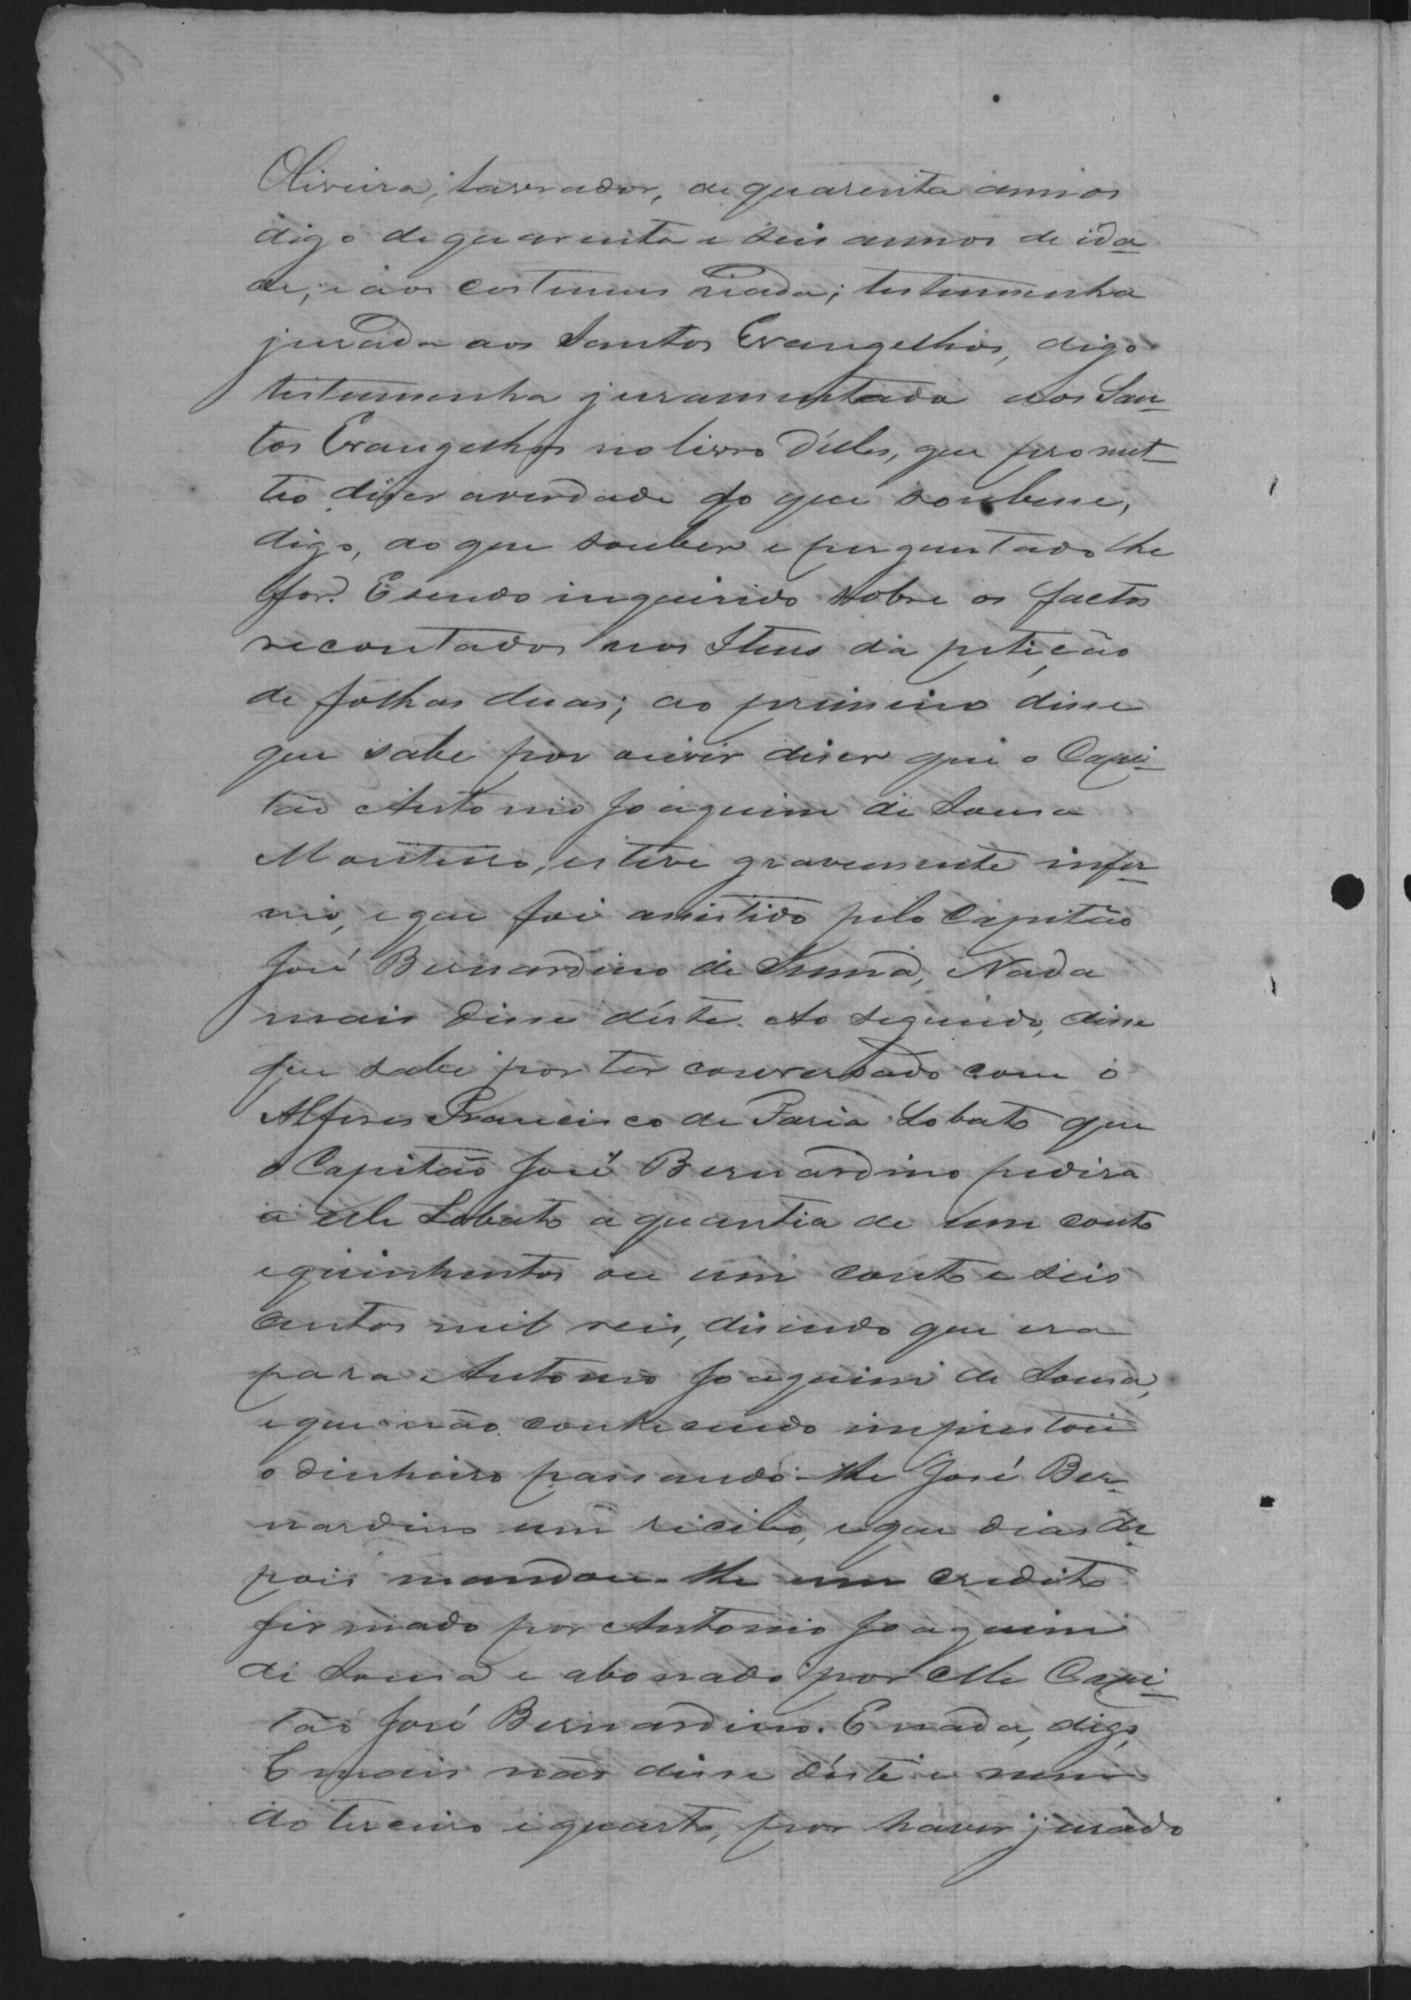 Oliveira, lavrador, de quarenta annos
digo de quarenta e seis annos de ida
de, e aos costumes nada; testemunha
jurada aos Santos Evangelhos, digo
testemunha juramentada aos San-
tos Evangelhos no livro d'elles, que promet-
teo diser averdade do que soubesse,
digo, do que souber e perguntado lhe
for. E sendo inquirido sobre os factos
recontados nos Itens da petição
de folhas duas; ao primeiro disse
que sabe por ouvir diser que o Capi-
tão Antonio Joaquim de Sousa
Monteiro, esteve gravemente infer-
mo, e que foi assistido pelo Capitão
José Bernardino de Senna, Nada
mais disse déste. Ao segundo, disse
que sabe por ter conversado com o
Alferes Francisco de Faria Lobato que
o Capitão José Bernardino pedira
a elle Lobato a quantia de um conto
e quinhentos ou um conto e seis
centos mil reis, disendo que era
para Antonio Joaquim de Sousa,
e que não conhecendo imprestou
o dinheiro passando-lhe José Ber-
nardino um recibo, e que dias de
pois mandou-lhe um credito
firmado por Antonio Joaquim
de Sousa e abonado por elle Capi-
tão José Bernardino. E nada, digo,
E mais não disse déste e nem
do terceiro e quarto, por haver jurado